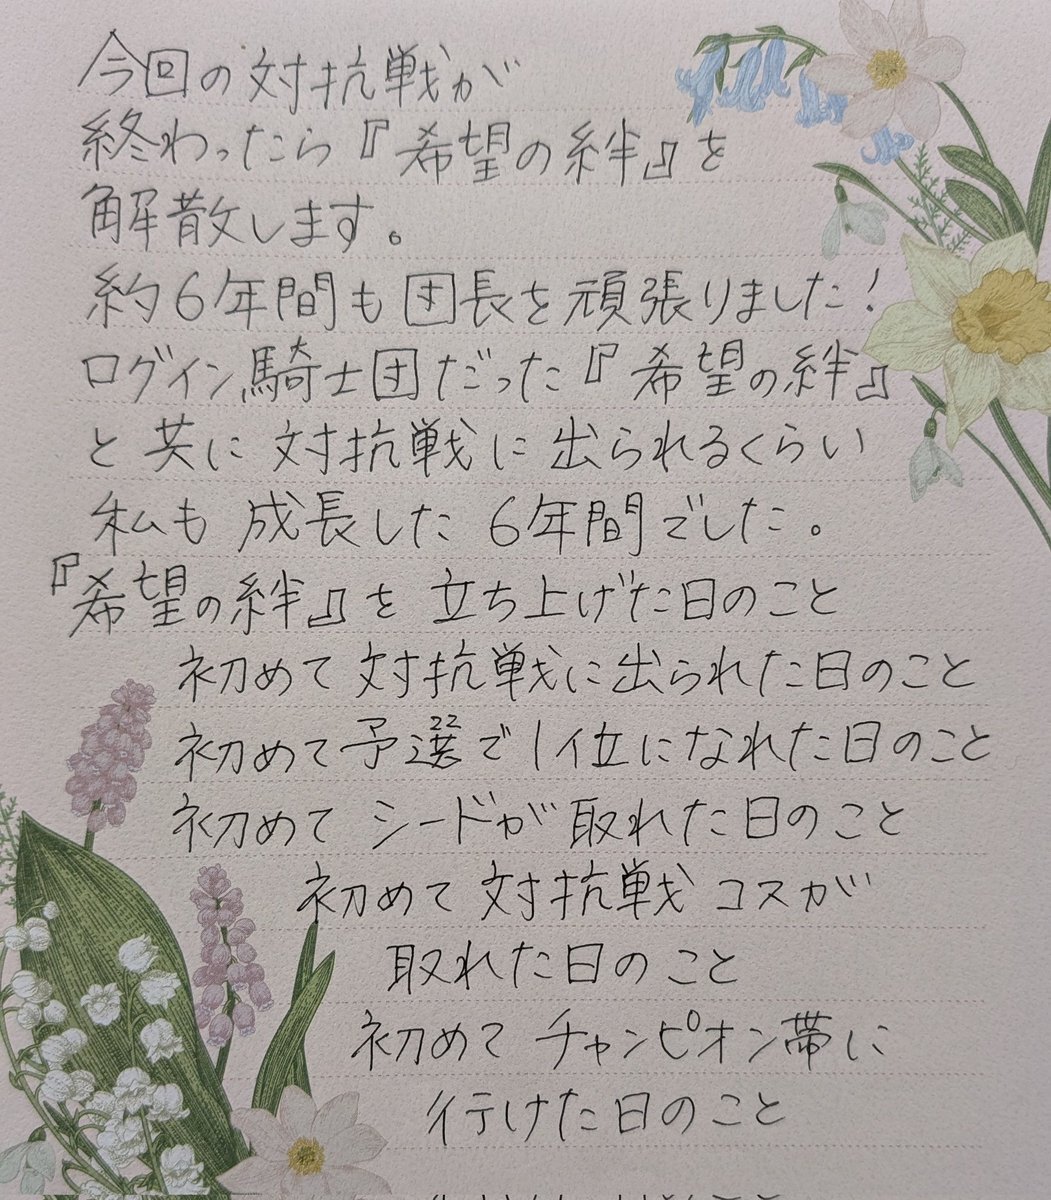 今回の対抗戦が
終わったら『希望の絆』を
解散します。
約6年間も団長を頑張りました!
ログイン騎士団だった『希望の絆』
と共に対抗戦に出られるくらい
私も成長した6年間でした。
『希望の絆』を立ち上げた日のこと
初めて対抗戦に出られた日のこと
初めて予選で1位になれた日のこと
初めてシードが取れた日のこと
初めて対抗戦コスが
取れた日のこと
初めてチャンピオン帯に
行けた日のこと